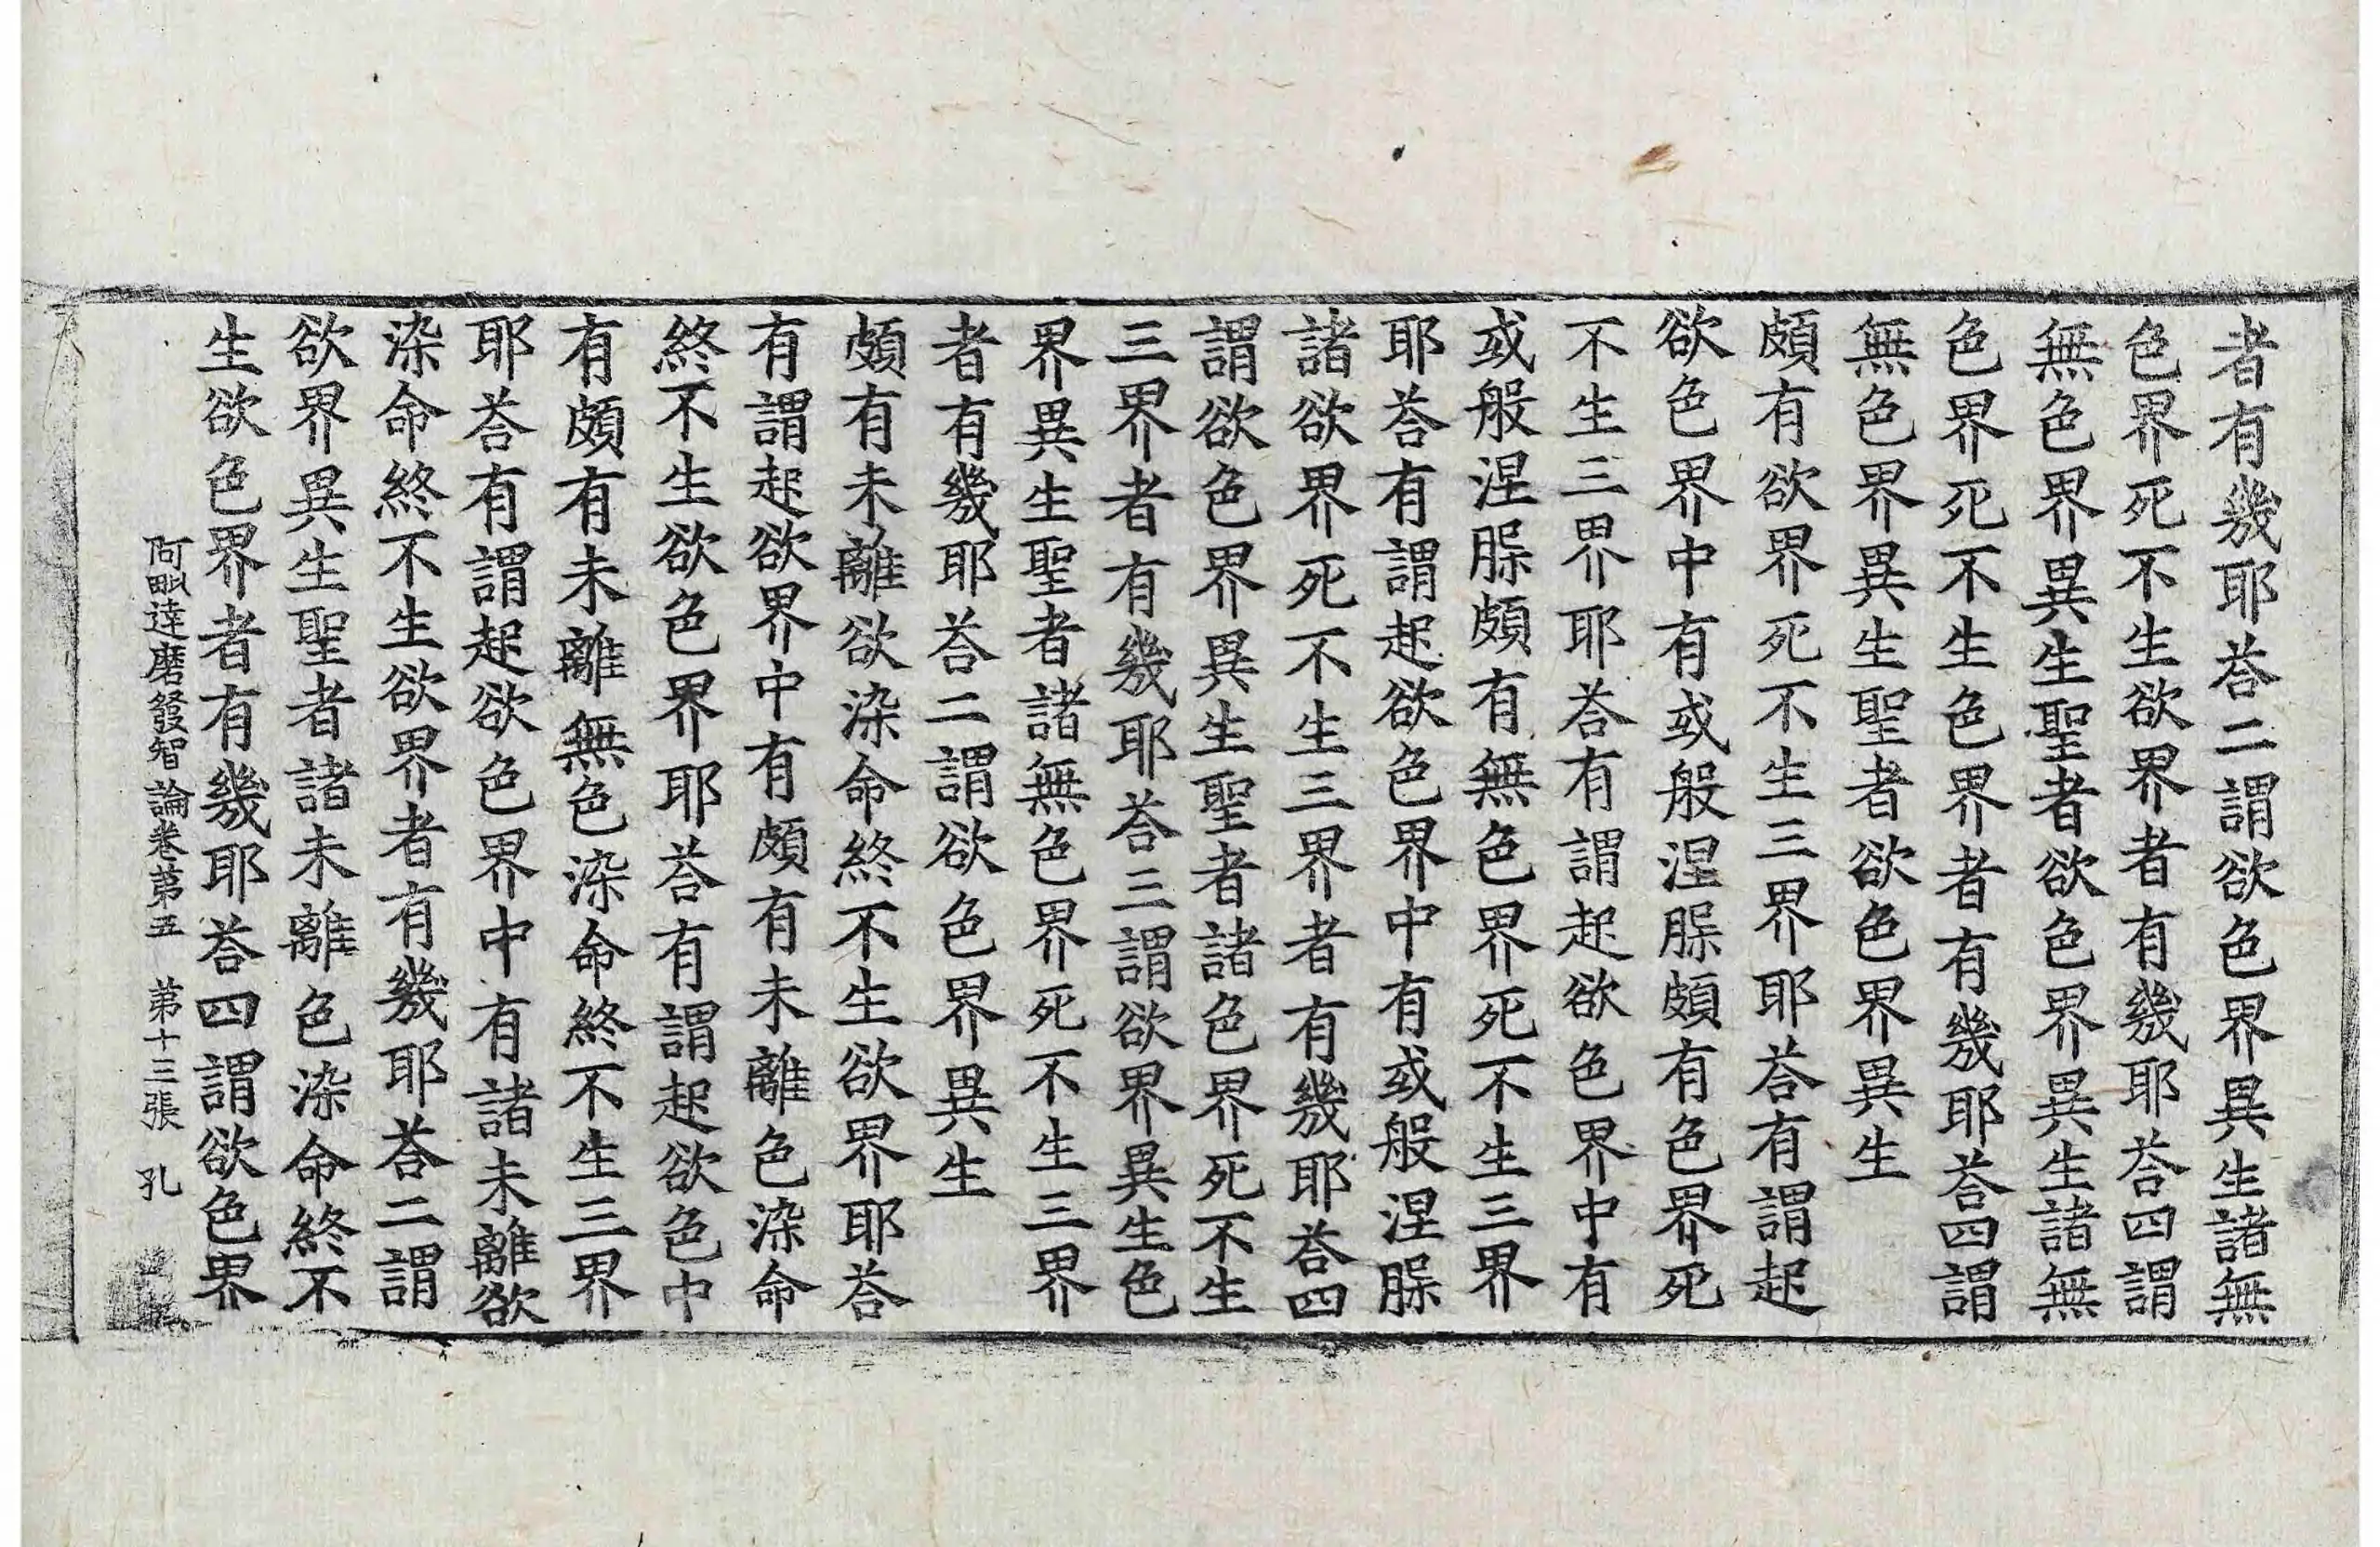 者有幾耶荅二謂欲色界異生諸無
色界死不生欲界者有幾耶荅四謂
無色界異生聖者欲色界異生諸無
色界死不生色界者有幾耶荅四謂
無色界異生聖者欲色界異生
頗有欲界死不生三界耶荅有謂起
欲色界中有或般涅脲頗有色界死
不生三界耶荅有謂起欲色界中有
或般涅脲頗有無色界死不生三界
耶荅有謂起欲色界中有或般涅脲
諸欲界死不生三界者有幾耶荅四
謂欲色界異生聖者諸色界死不生
三界者有幾耶荅三謂欲界異生色
界異生聖者諸無色界死不生三界
者有幾耶荅二謂欲色界異生
頗有未離欲染命終不生欲界耶荅
有謂起欲界中有頗有未離色染命
終不生欲色界耶荅有謂起欲色中
有頗有未離無色染命終不生三界
耶荅有謂起欲色界中有諸未離欲
染命終不生欲界者有幾耶荅二謂
欲界異生聖者諸未離色染命終不
生欲色界者有幾耶荅四謂欲色界
阿毗達磨發智論卷第五 第十三張 孔